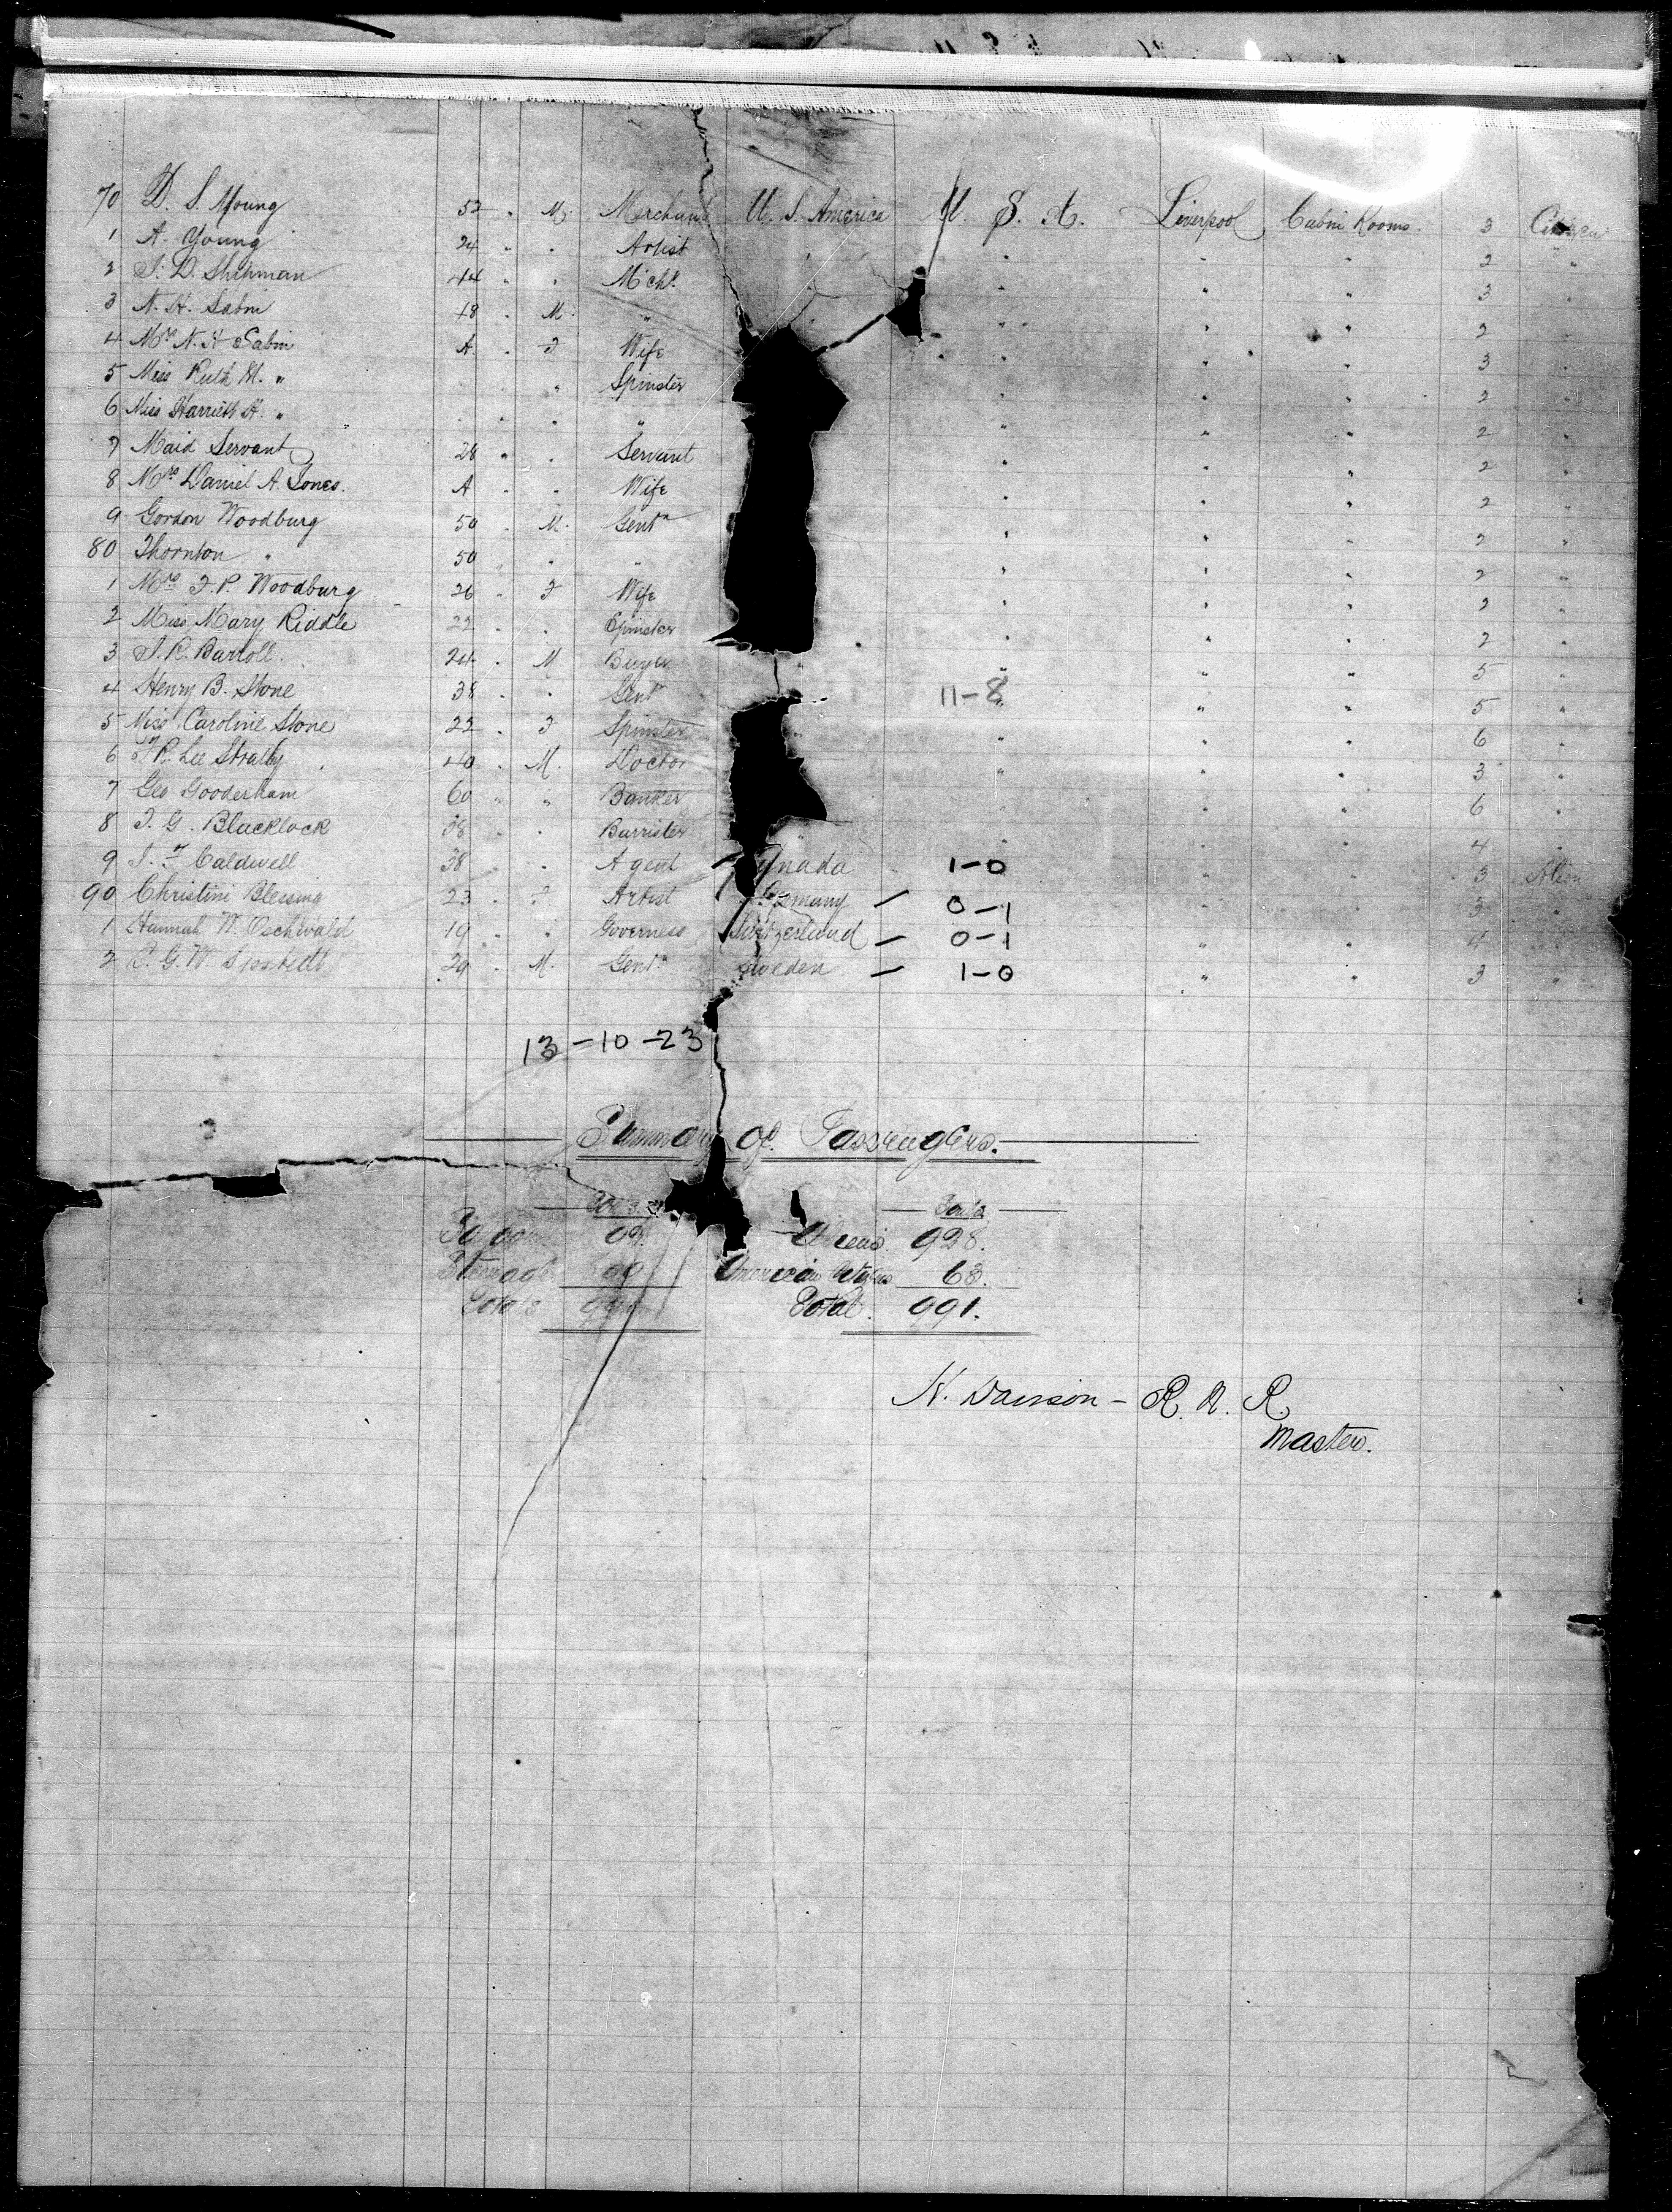 70 D. S. Young 52 " M. Merchant U. S. America U. S. A. Liverpool Cabin Rooms. 3 Citizen
1 A. Young 24 " " Artist " " " 2 "
2 S. D. Shipman 44 " " Mcht. " " " 3 "
3 N. H. Sabin 48 " M. " " " " 2 "
4 Mrs N. H Sabin A. " F Wife " " " 3 "
5 Miss Ruth M. " " Spinster " " " 2 "
6 Miss Harriett H. " " " " " " " " 2 "
7 Maid Servant 28 " " Servant " " " 2 "
8 Mrs Daniel A. Jones. A " " Wife " " " 2 "
9 Gordon Woodburg 50 " M. Gentn " " " 2 "
80 Thornton " 50 " " " " " " 2 "
1 Mrs F. P. Woodburg 26 " F Wife " " " 2 "
2 Miss Mary Riddle 22 " " Spinster " " " 2 "
3 S. R. Bartoll. 24 " M Buyer " " " " 5 "
4 Henry B. Stone 38 " " Gentn 11-8 " " 5 "
5 Miss Caroline Stone 22 " F Spinster " " " " 6 "
6 R. Lee 40 " M. Doctor " " " 3 "
7 Geo Gooderham 60 " " Banker " " " 6 "
8 F. G. Blacklock 38 " " Barrister " " " 4 "
9 Caldwell 38 " " Agent Canada 1-0 " " 3 Alien
90 Christini Blessing 23 " F. Artist Germany - 0-1 " " 3 "
1 Hannah W. Oschwald 19 " " Governess Switzerland - 0-1 " " 4 "
2 G. W 29 " M. Gentn Sweden - 1-0 " " 3 "
13-10-23
Summary of Passengers.
Souls
Aliens. 928.
Steerage American Citizens 63.
Totals 991 Total. 991.
H. Dawson - R. N. R.
Master.